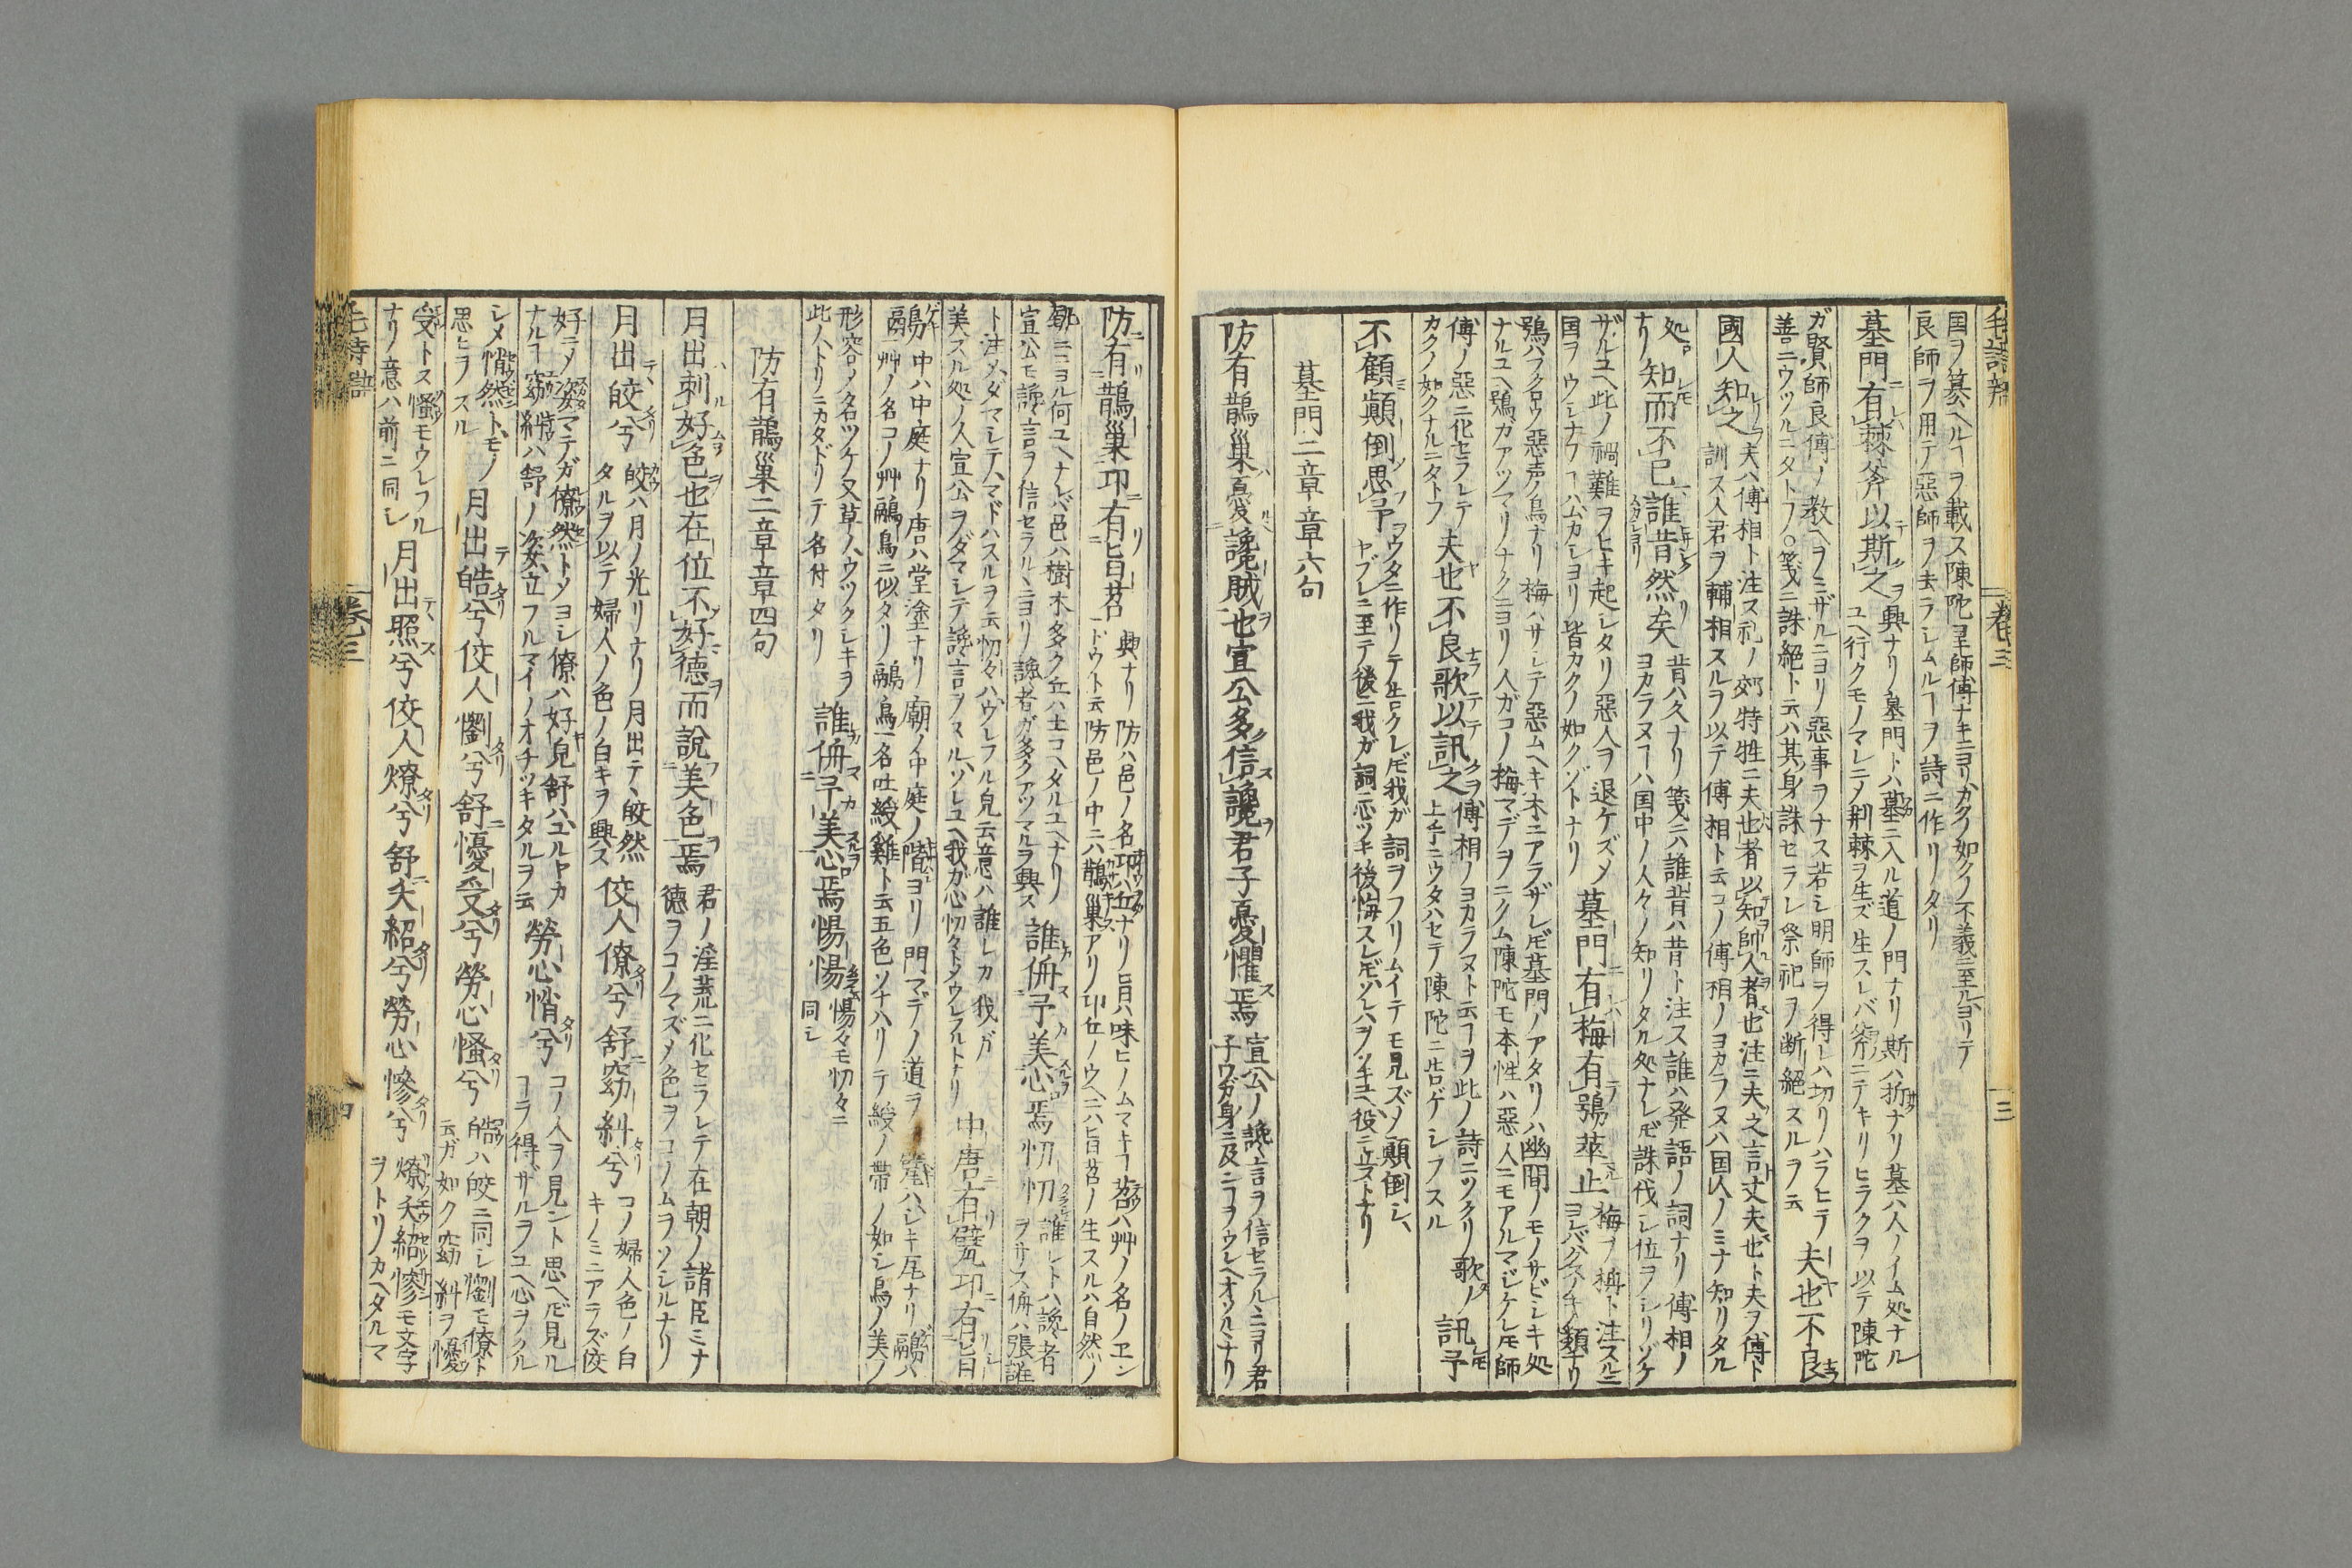 卷三 三
国ヲ篡ヘルヿヲ載ス陳陀ニ師傅ナキニヨリカクノ如クノ不義ニ至ルヨリテ
良師ヲ用テ惡師ヲ去ラシムルヿヲ詩ニ作リタリ
墓門有棘斧以斯之
興ナリ墓門トハ墓ニ入ル道ノ門ナリ斯ハ折ナリ墓ハ人ノイム処ナル
ユヘ行クモノマレニメ荊棘ヲ生ズ生スレバ斧ニテキリヒラクヲ以テ陳陀
ガ賢師良傅ノ教ヘヲミザルニヨリ惡事ヲナス若シ明師ヲ得レハ切リハラヒテ
善ニウツルニタトフ○箋ニ誅絕ト云ハ其身誅セラレ祭祀ヲ断絕スルヲ云
夫也不良
國人知之
夫ハ傅相ト注ス礼ノ郊特牲ニ夫也者以知帥人者也注ニ夫之言丈夫也ト夫ヲ傅ト
訓ス人君ヲ輔相スルヲ以テ傅相ト云コノ傅相ノヨカラヌハ国人ノミナ知リタル
処
ナリ
知而不已誰昔然矣
昔ハ久ナリ箋ニハ誰昔ハ昔ト注ス誰ハ発語ノ詞ナリ傅相ノ
ヨカラヌヿハ国中ノ人々ノ知リタル処ナレ𪜈誅伐シ位ヲシリゾケ
ザルユヘ此ノ禍難ヲヒキ起シタリ惡人ヲ退ケズメ
国ヲウシナフヿハムカシヨリ皆カクノ如クゾトナリ
墓門有梅有鴞萃止
梅ヲ枏ト注スルニ
類ナリ
鴞ハフクロウ惡声ノ鳥ナリ梅ハサシテ惡ムヘキ木ニアラザレ𪜈墓門ノアタリハ幽間ノモノサビシキ処
ナルユヘ鴞ガアツマリナクニヨリ人ガコノ梅マデヲニクム陳陀モ本性ハ惡人ニモアルマジケレ𪜈師
傅ノ惡ニ化セラレテ
カクノ如クナルニタトフ
夫也不良歌以訊之
傅相ノヨカラヌト云ヿヲ此ノ詩ニツクリ歌ノ
上手ニウタハセテ陳陀ニ告ゲシラスル
訊予
不顧顚倒思予
ウタニ作リテ告クレ𪜈我ガ詞ヲフリムイテモ見ズメ顚倒シ、
ヤブレニ至テ後ニ我ガ詞ニ心ツキ後悔スレ𪜈ソレハヲソキユヘ役ニ立ヌトナリ
墓門二章章六句
防有鵲巢憂讒賊也宣公多信讒君子憂懼焉
宣公ノ讒言ヲ信セラルヽニヨリ君
子ワガ身ニ及ニヿヲウレヘオソルヽナリ
防有鵲巢邛有旨苕
興ナリ防ハ邑ノ名邛ハ丘ナリ旨ハ味ヒノムマキヿ苕ハ艸ノ名ノヱン
ドウト云防邑ノ中ニハ鵲巢アリ邛丘ノウヘニハ旨苕ノ生スルハ自然ノ
㔟ニヨル何ユヘナレバ邑ハ樹木多ク丘ハ土コヘタルユヘナリ
宣公モ讒言ヲ信セラルヽニヨリ讒者ガ多クアツマルヲ興ス
誰侜予美心焉忉忉
誰レトハ讒者
ヲサス侜ハ張誑
ト注メダマシテマドハスルヲ云忉々ハウレフル皃云意ハ誰レカ我ガ
美スル処ノ人宣公ヲダマシテ讒言ヲスルソレユヘ我ガ心忉々トメウレフルトナリ
中唐有甓邛有旨
鷊
中ハ中庭ナリ唐ハ堂塗ナリ廟ノ中庭ノ階ヨリ門マデノ道ヲ云甓ハシキ瓦ナリ鷊ハ
艸ノ名コノ艸鷊鳥ニ似タリ鷊鳥一名吐綬雞ト云五色ソナハリテ綬ノ帶ノ如シ鳥ノ美ノ
形容ノ名ツケ又草ノウツクシキヲ
此ノトリニカタドリテ名付タリ
誰侜予美心焉惕惕
惕々モ忉々ニ
同シ
防有鵲巢二章章四句
月出刺好色也在位不好德而說美色焉
君ノ淫荒ニ化セラレテ在朝ノ諸臣ミナ
德ヲコノマズメ色ヲコノムヲソシルナリ
月出皎兮
皎ハ月ノ光リナリ月出テヽ皎然
タルヲ以テ婦人ノ色ノ白キヲ興ス
佼人僚兮舒窈糾兮
コノ婦人色ノ白
キノミニアラズ佼
好テノ姿マテガ僚然トメヨシ僚ハ好皃舒ハユルヤカ
ナルヿ窈糾ハ舒ノ姿立フルマイノオチツキタルヲ云
勞心悄兮
コノ人ヲ見ント思ヘ𪜈見ル
ヿヲ得ザルヲユヘ心ヲクル
シメ悄然トモノ
思ヒヲスル
月出皓兮佼人懰兮舒懮受兮勞心慅兮
皓ハ皎ニ同シ懰モ僚ト
云ガ如ク窈糾ヲ懮
受トス慅モウレフル
ナリ意ハ前ニ同シ
月出照兮佼人燎兮舒夭紹兮勞心慘兮
燎夭紹慘モ文字
ヲトリカヘタルマ
卷三 四